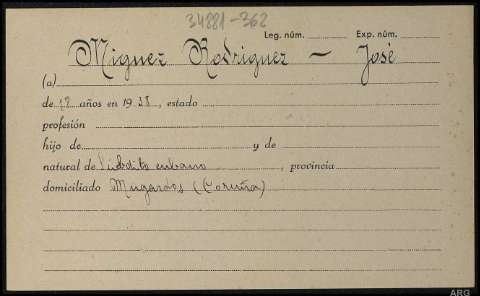 34881-362
Leg. núm. Exp. núm.
Miguez Rodriguez — José
(a)
de 18 años en 1938, estado
profesión
hijo de y de
natural de Súbdito cubano, provincia
domiciliado Mugardos (Coruña)
ARG